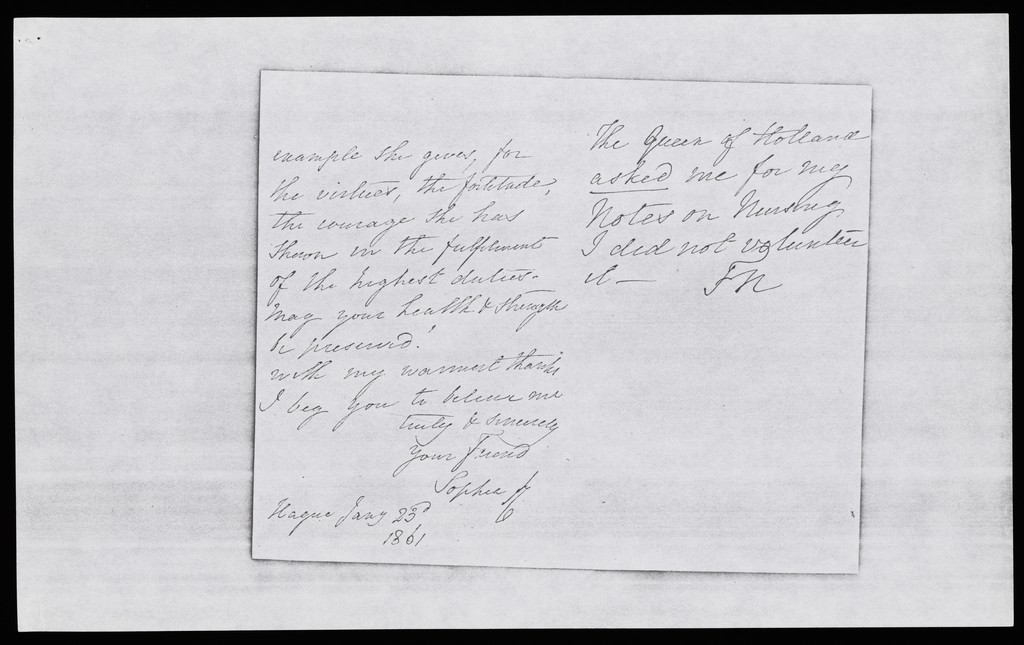 example she gives, for
the virtues, the fortitude,
the courage she has
shown in the fulfilment
of the highest duties.
May your health & strength
be preserved!
with my warmest thanks
I beg you to believe me
truly & sincerely
your Friend
Sophie
Hague Jany 23d
1861
The Queen of Holland
asked me for my
Notes on Nursing
I did not volunteer
it —  FN